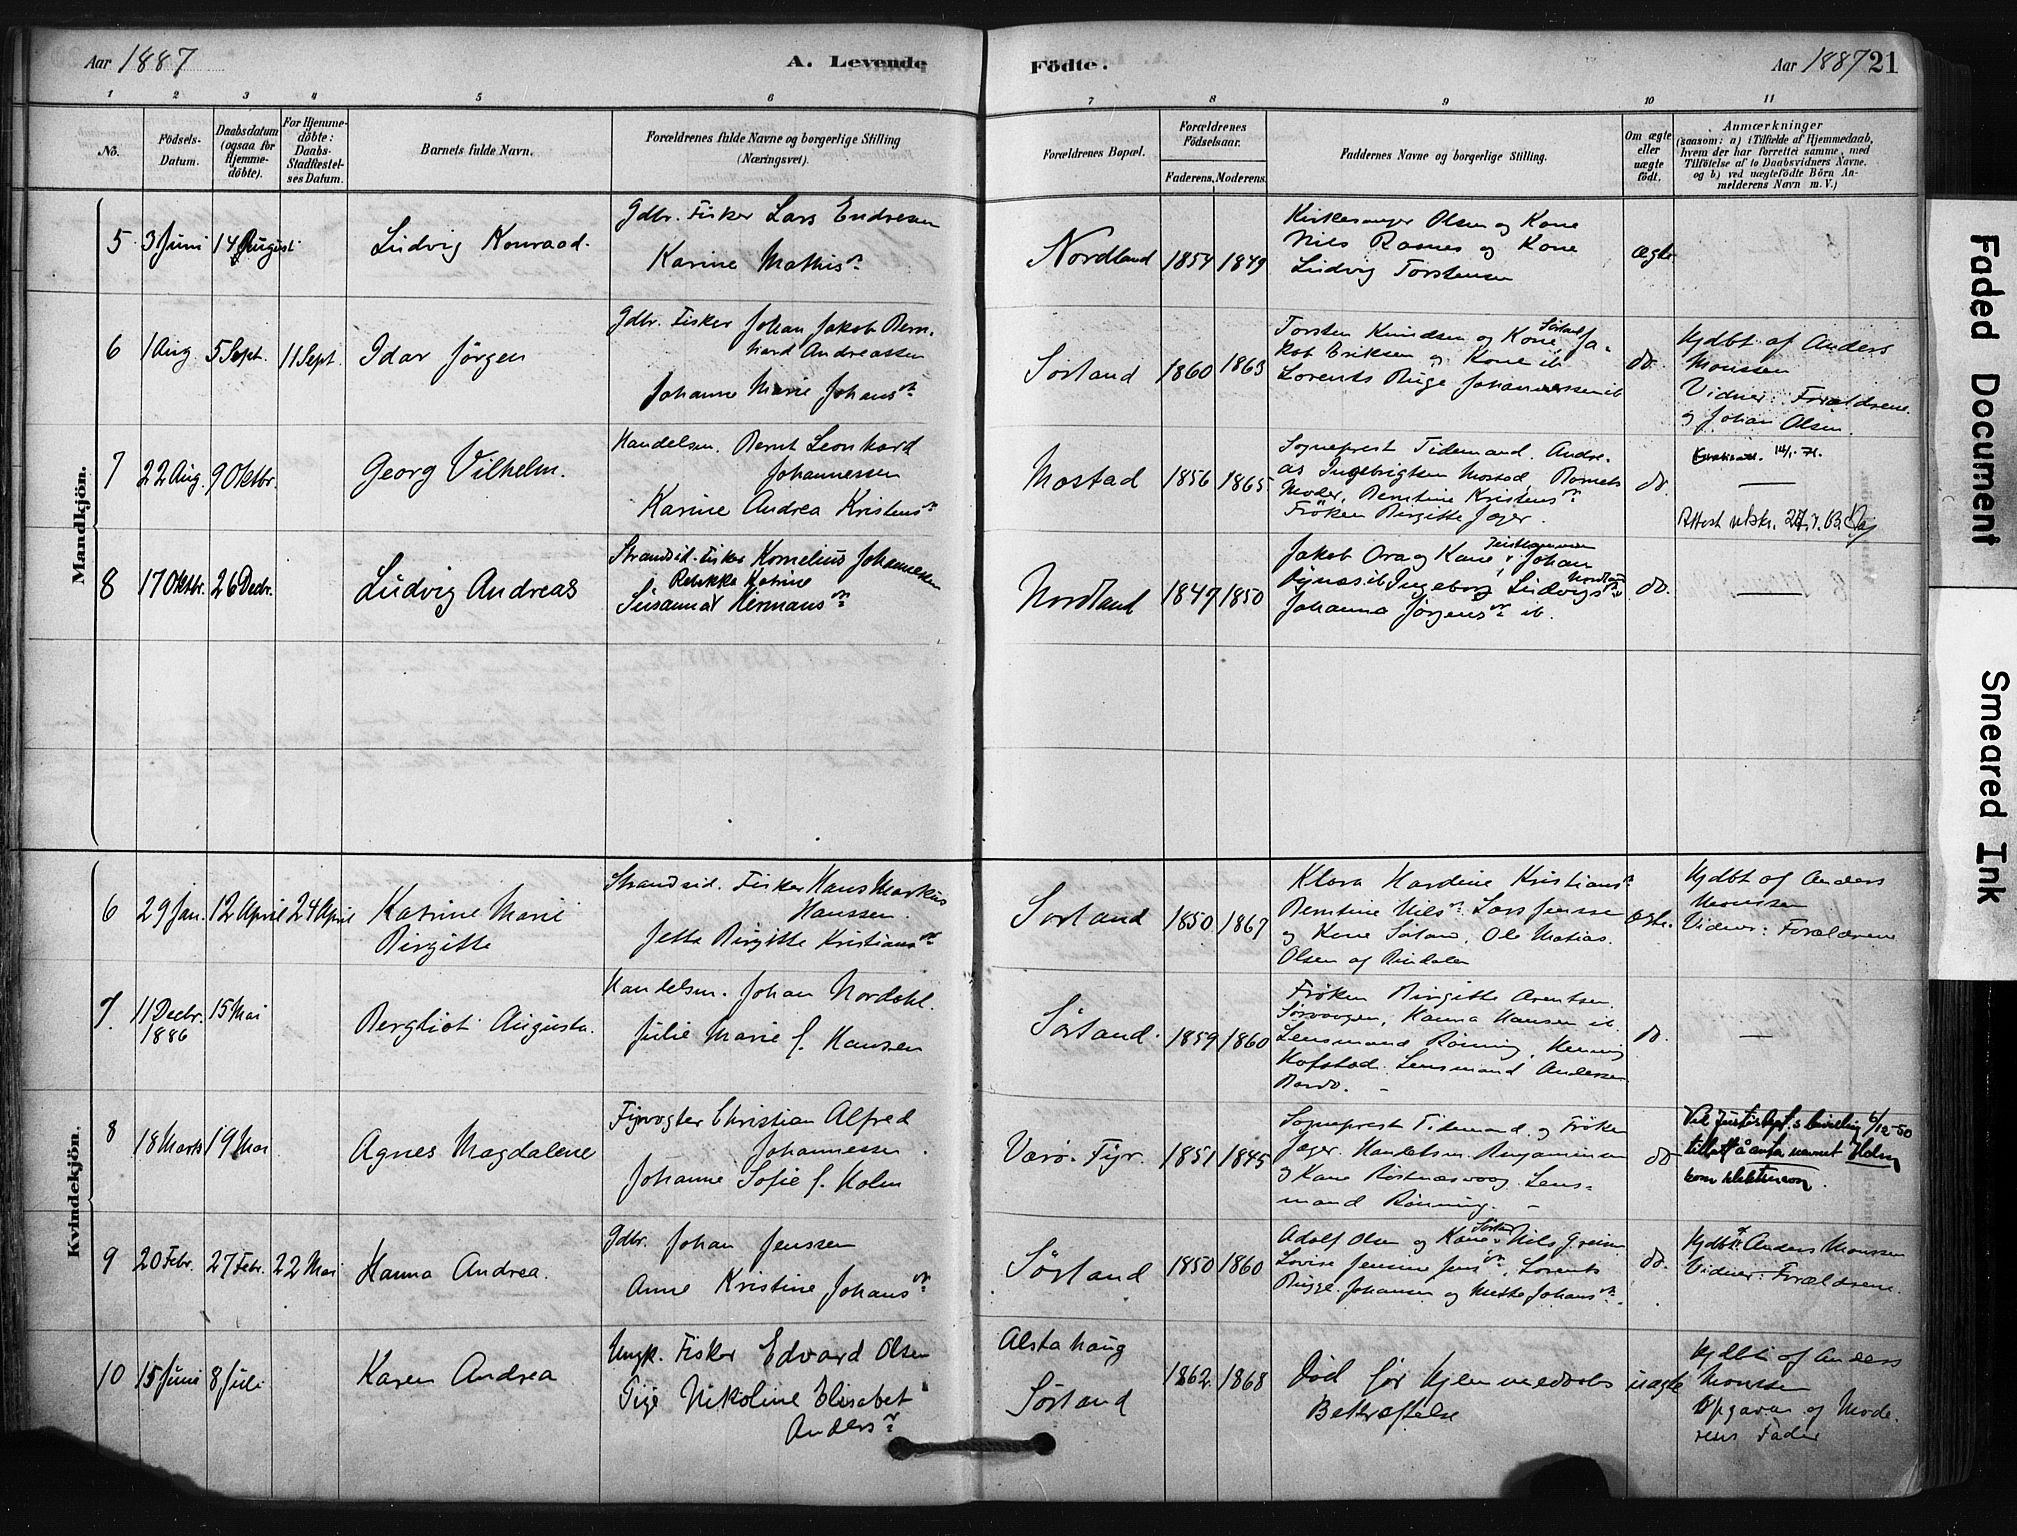 Aar 1887
A. Levende
Födte.
Aar 1887 21
1 2 3 4 5 6 7 8 9 10 11
No.
Födsels-
Datum.
Daabsdatum
(ogsaa for
Hjemme-
döbte).
For Hjemme-
döbte:
Daabs-
Stadfæstel-
ses Datum.
Barnets fulde Navn.
Forældrenes fulde Navne og borgerlige Stilling
(Næringsvei).
Forældrenes Bopæl.
Forældrenes
Födselsaar.
Faderens. Moderens.
Faddernes Navne og borgerlige Stilling.
Om ægte
eller
uægte
født.
Anmærkninger
(saasom: a) i Tilfælde af Hjemmedaab,
hvem der har forrettet samme, med
Tilföielse af to Daabsvidners Navne,
og b) ved uægtefödte Börn An-
melderens Navn m. V.)
Mandkjön.
5 3 Juni 14 August
Ludvig Konraad.
Gdbr. Fisker Lars Endresen
Karine Mathisdr
Nordland 1854 1849
Kirkesanger Olsen og Kone
Nils Rasmes og Kone
Ludvig Torstensen
ægte
6 1 Aug. 5 Sept. 11 Sept.
Idar Jörgen
Gdbr. Fisker Johan Jakob Bern-
hard Andreassen
Johanne Marie Johansdr
Sörland 1860 1863
Torsten Knudsen og Kone Sörland Ja-
kob Eriksen og Kone ib
Lorents Ruge Johannessen ib
do.
Hjdbt af Anders
Monssen
Vidner: Forældrene
og Johan Olsen.
7 22 Aug. 9 Oktbr.
Georg Vilhelm.
Handelsm. Bernt Leonhard
Johannessen
Karine Andrea Kristensdr
Mostad 1856 1865
Sogneprest Tidemand. Andre-
as Ingebrigtsen Mostad, Barnets
Moder, Berntine Kristensdr
Fröken Birgitte Jæger.
do.
Attest utskr.
8 17 Oktbr. 26 Decbr.
Ludvig Andreas
Strandsid. Fisker Kornelius Johannessen
Rebekka Katrine
Susanna Hermansdr
Nordland 1847 1850
Jakob Ora og Kone, Johan
ib Ingeborg Ludvigsdr Nordland
Johanna Jörgensdr ib.
do.
Kvindekjön.
6 29 Jan. 12 April 24 April
Katrine Marie
Birgitte
Strandsid. Fisker Hans Markus
Hanssen.
Jetta Birgitte Kristiansdr
Sörland 1850 1867
Klara Hardine Kristiansdr
Berntine Nilsdr Lars Jenssen
og Kone Sörland, Ole Matias
Olsen af Bindalen
ægte.
Hjdbt af Anders
Monssen
Vidner: Forældrene
7. 11 Decbr. 15 Mai
1886
Bergliot Augusta.
Handelsm. Johan Nordahl.
Julie Marie f. Hansen
Sörland. 1859 1860
Fröken Birgitte Arentsen
Sörvaagen, Hanna Hansen ib.
Lensmand Rönning, Henning
Hofstad. Lensmand Andersen
Bardo.
do.
8 18 Marts 19 Mai
Agnes Magdalene
Fyrvogter Christian Alfred
Johannessen.
Johanne Sofie f. Holm
Værö Fyr. 1851 1845
Sogneprest Tidemand og Fröken
Jæger. Handelsm. Benjaminsen
og Kone Röstnæsvaag. Lens-
mand Rönning.
do
Ved Justisdept.s bevilling 6/12-50
tillatt å anta navnet Holm
som slektsnavn.
9 20 Febr. 27 Febr. 22 Mai
Hanna Andrea.
Gdbr. Johan Jenssen
Anne Kristine Johansdr
Sörland 1850 1860
Adolf Olsen og Kone Sörland Nils Greien
Lovise Jensine Jensdr, Lorents
Rugge Johansen og Mette Johansdr.
do.
Hjdbt af Anders Monssen
Vidner: Forældrene.
10 15 Juni 8 Juli
Karen Andrea
Ungk. Fisker Edvard Olsen
Pige Nikoline Elisabet
Andersdr
Alstahaug
Sörland
1862. 1868
Död för Hjemmedaabs
Bekræftelse
uægte
Hjdbt af Anders
Monssen
Opgaven og Mode-
rens Fader
Faded Document
Smeared Ink